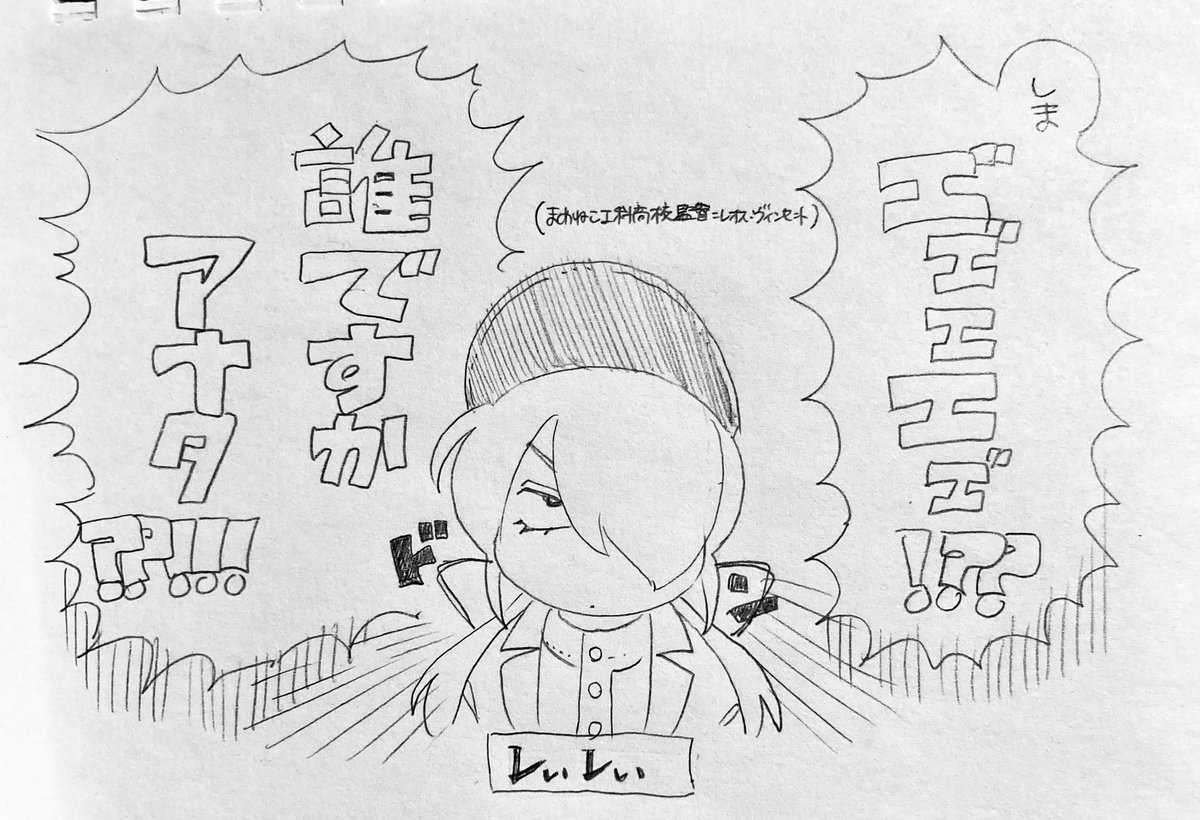 しま
エ゛エ゛エエエ゛!??
(まかねこ工科高校監督=レオス・ヴィンセント)
誰ですか
アナタ??!!!
ドン
レいレい